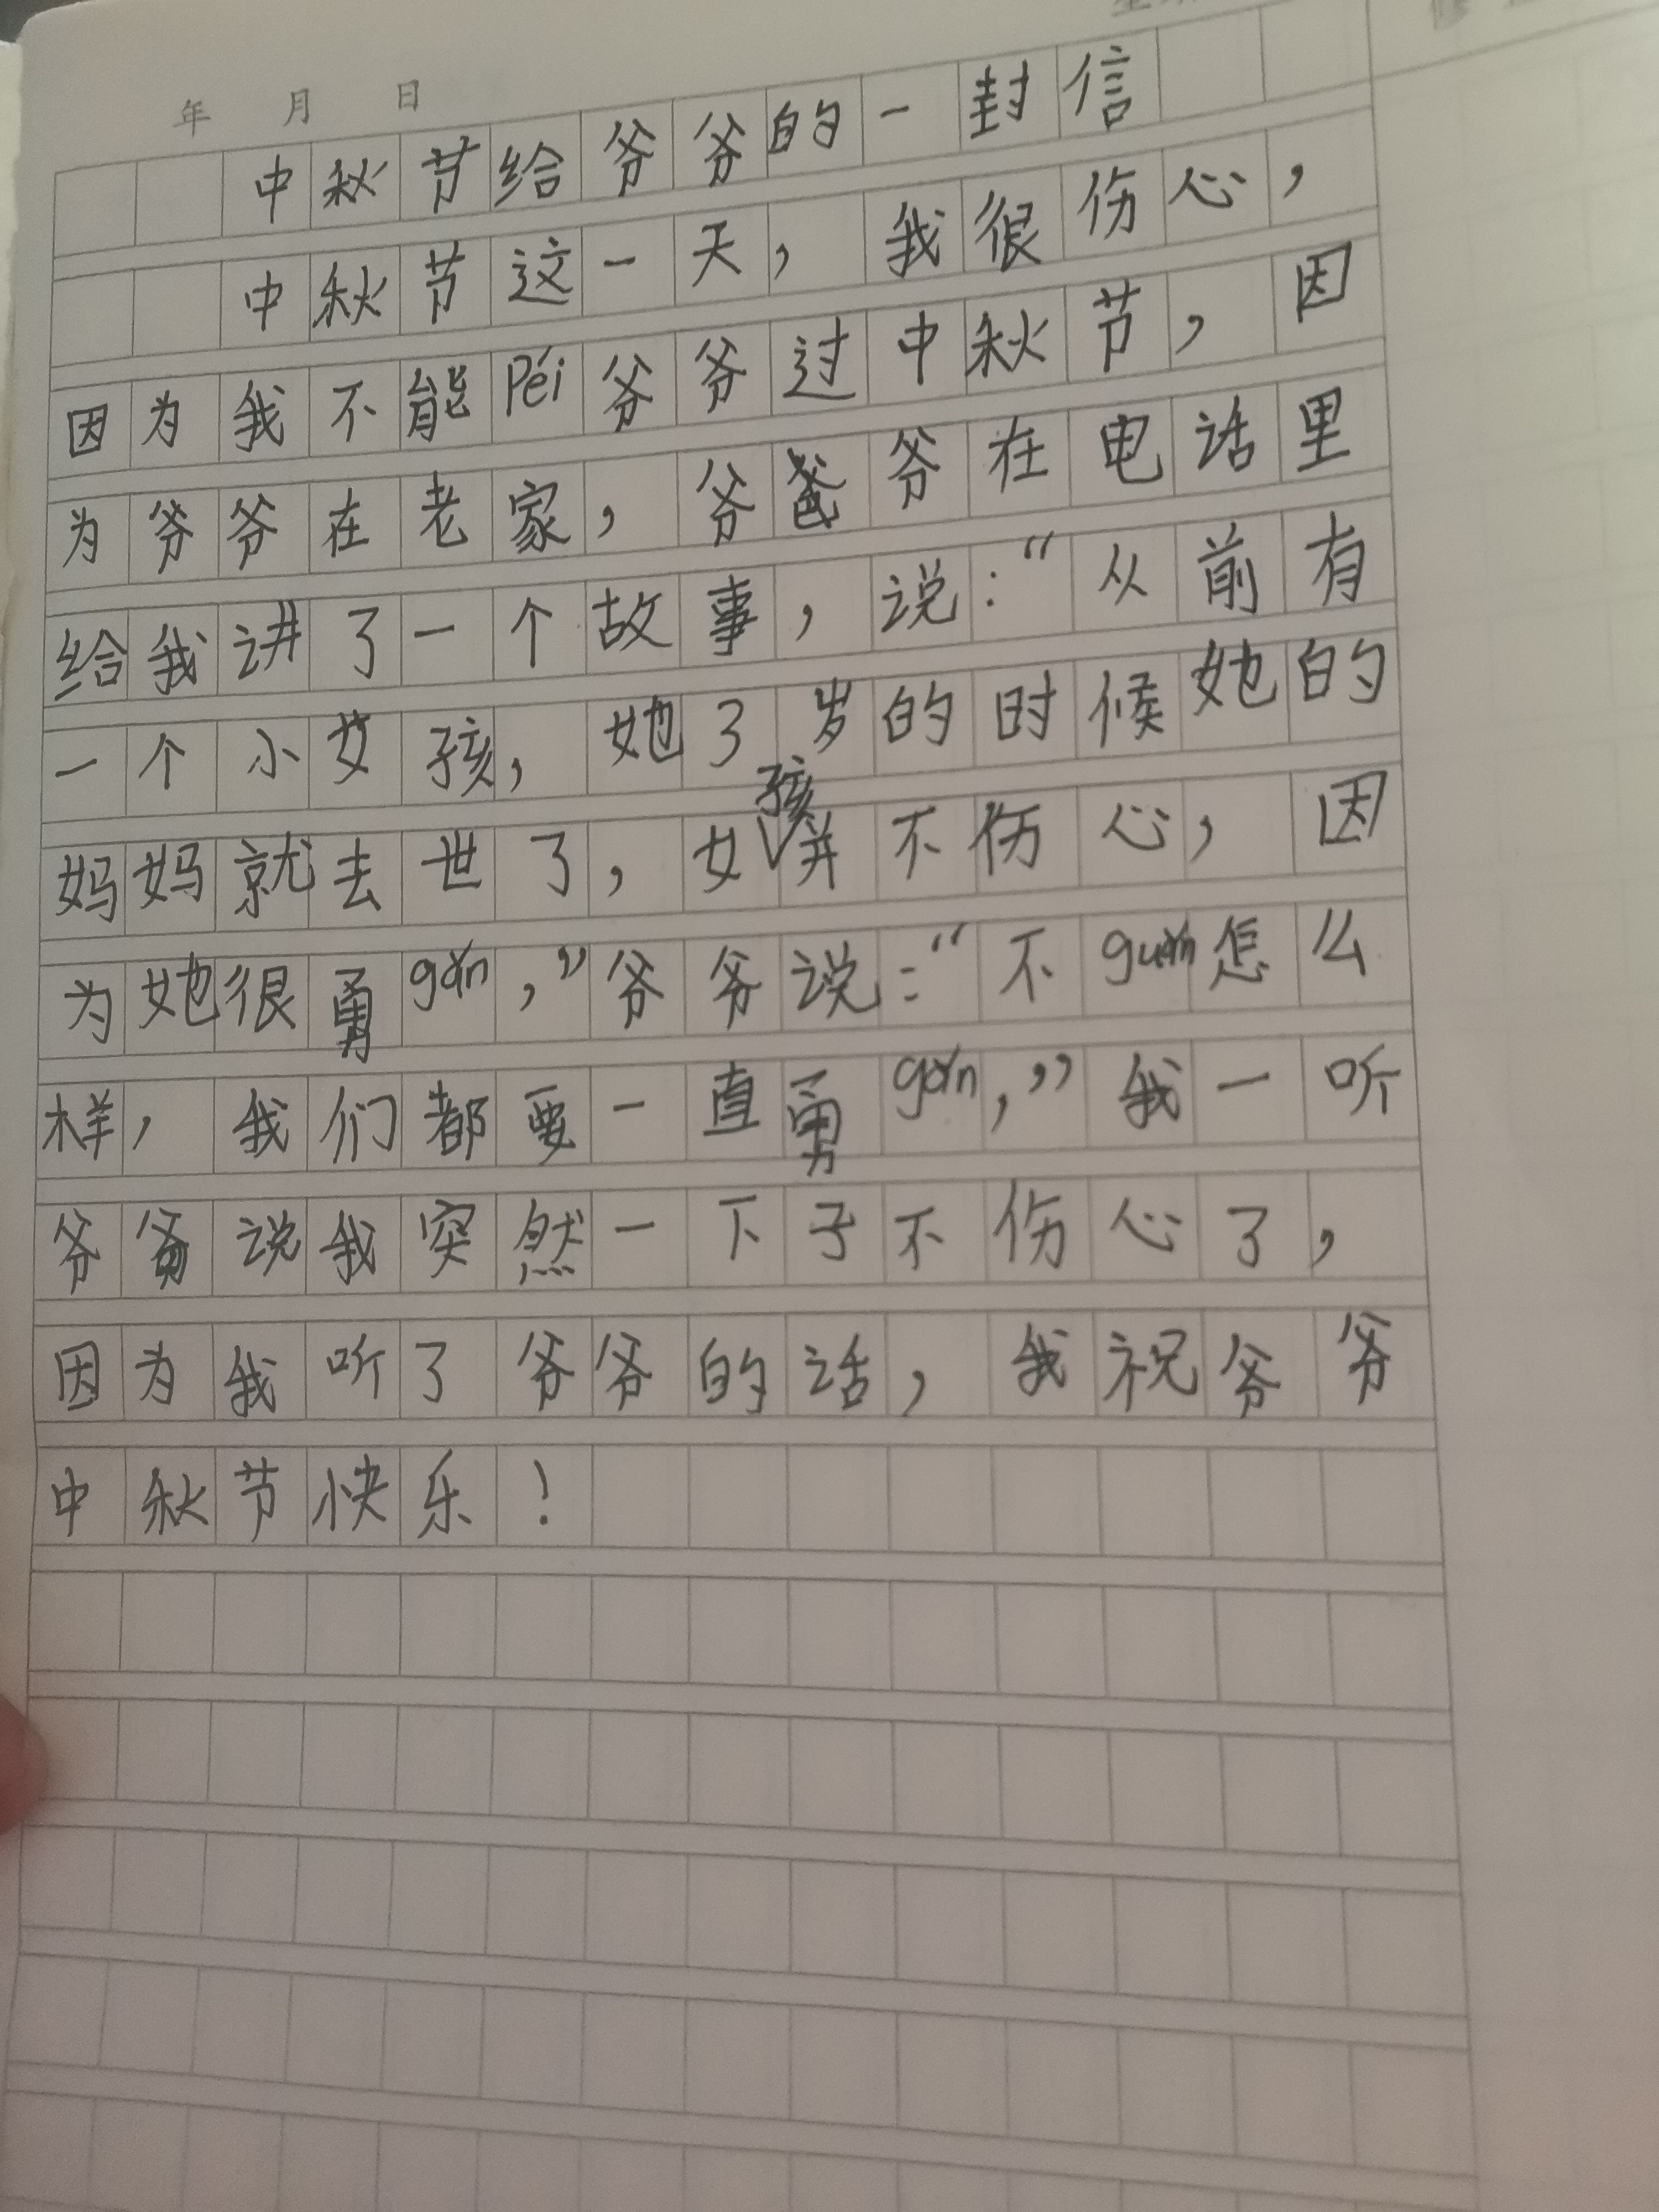 年 月 日
中秋节给爷爷的一封信
中秋节这一天，我很伤心，
因为我不能péi爷爷过中秋节，因
为爷爷在老家，爷爷在电话里
给我讲了一个故事，说：“从前有
一个小女孩，她3岁的时候她的
妈妈就去世了，女孩并不伤心，因
为她很勇gǎn，”爷爷说：“不guǎn怎么
样，我们都要一直勇gǎn，”我一听
爷爷说我突然一下子不伤心了，
因为我听了爷爷的话，我祝爷爷
中秋节快乐！